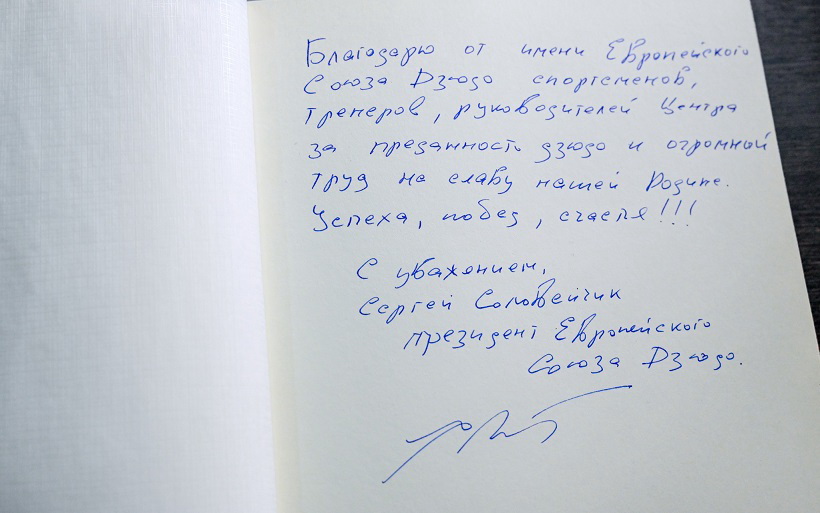 Благодарю от имени Европейского
Союза Дзюдо спортсменов,
тренеров, руководителей Центра
за преданность дзюдо и огромный
труд на славу нашей Родине.
Успеха, побед, счастья!!!
С уважением,
Сергей Соловейчик
президент Европейского
Союза Дзюдо.